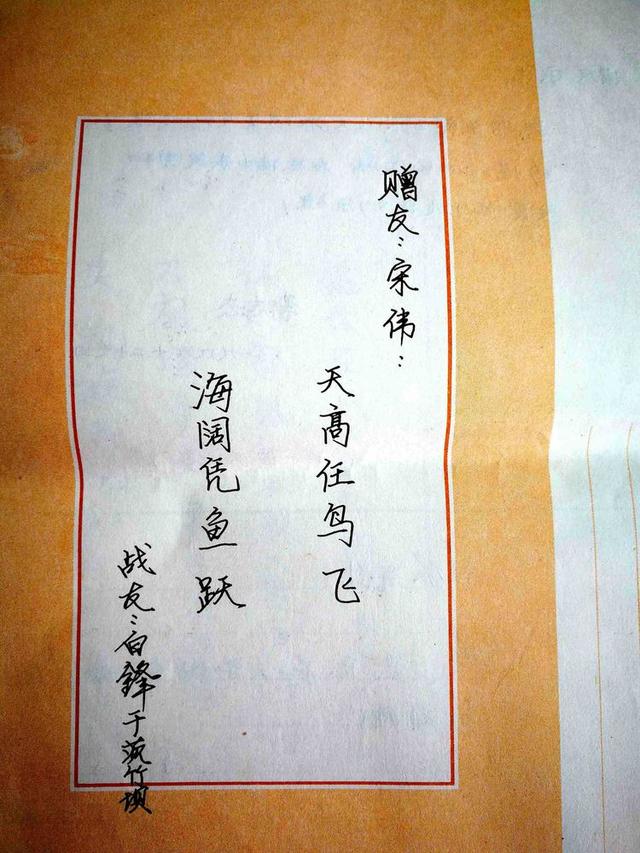 赠友：宋伟：
天高任鸟飞
海阔凭鱼跃
战友：白鋒于菰竹坝